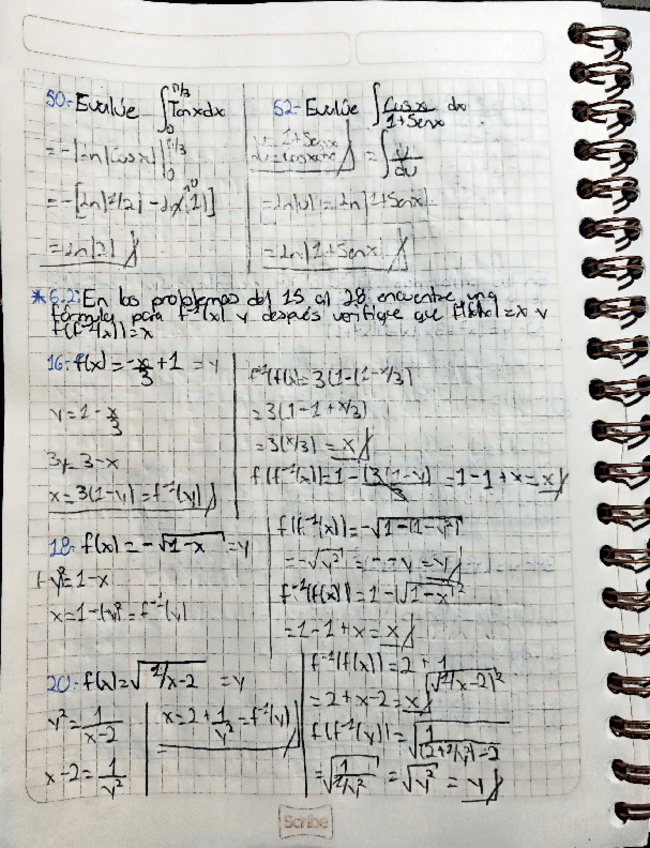 50. Evalúe ∫₀^(π/3) Tanxdx
= -|Ln|Cosx||₀^(π/3)
= -[Ln|1/2| - Ln(1)]
= Ln|2|
52. Evalúe ∫ Cosx/1+Senx dx
u = 1+Senx
du = cosxdx
= ∫ u/du
= Ln|u| = Ln|1+Senx|
= Ln|1+Senx|
*6.2: En los problemas del 15 al 28 encuentre una
fórmula para f⁻¹(x) y después verifique que
f(f⁻¹(x)) = x
16. f(x) = -x/3 + 1 = y
y = 1 - x/3
3y = 3-x
x = 3(1-y) = f⁻¹(y)
f⁻¹(f(x)) = 3(1-(1-x/3)
= 3(1-1+x/3)
= 3(x/3) = x
f(f⁻¹(x)) = 1 - (3(1-y))/3 = 1-1+x = x
18. f(x) = -√1-x = y
x = 1-(y)² = f⁻¹(y)
f(f⁻¹(x)) = -√1-(1-y²)
= -√y² = -·-y = y
f⁻¹(f(x)) = 1-(√1-x)²
= 1-1+x = x
20. f(x) = √1/x-2 = y
y² = 1/x-2
x-2 = 1/y²
x = 2 + 1/y² = f⁻¹(y)
f⁻¹(f(x)) = 2 + 1/(√1/x-2)²
= 2+x-2 = x
f(f⁻¹(y)) = √1/(2+1/y²)-2
= √1/1/y² = √y² = y
Scribe